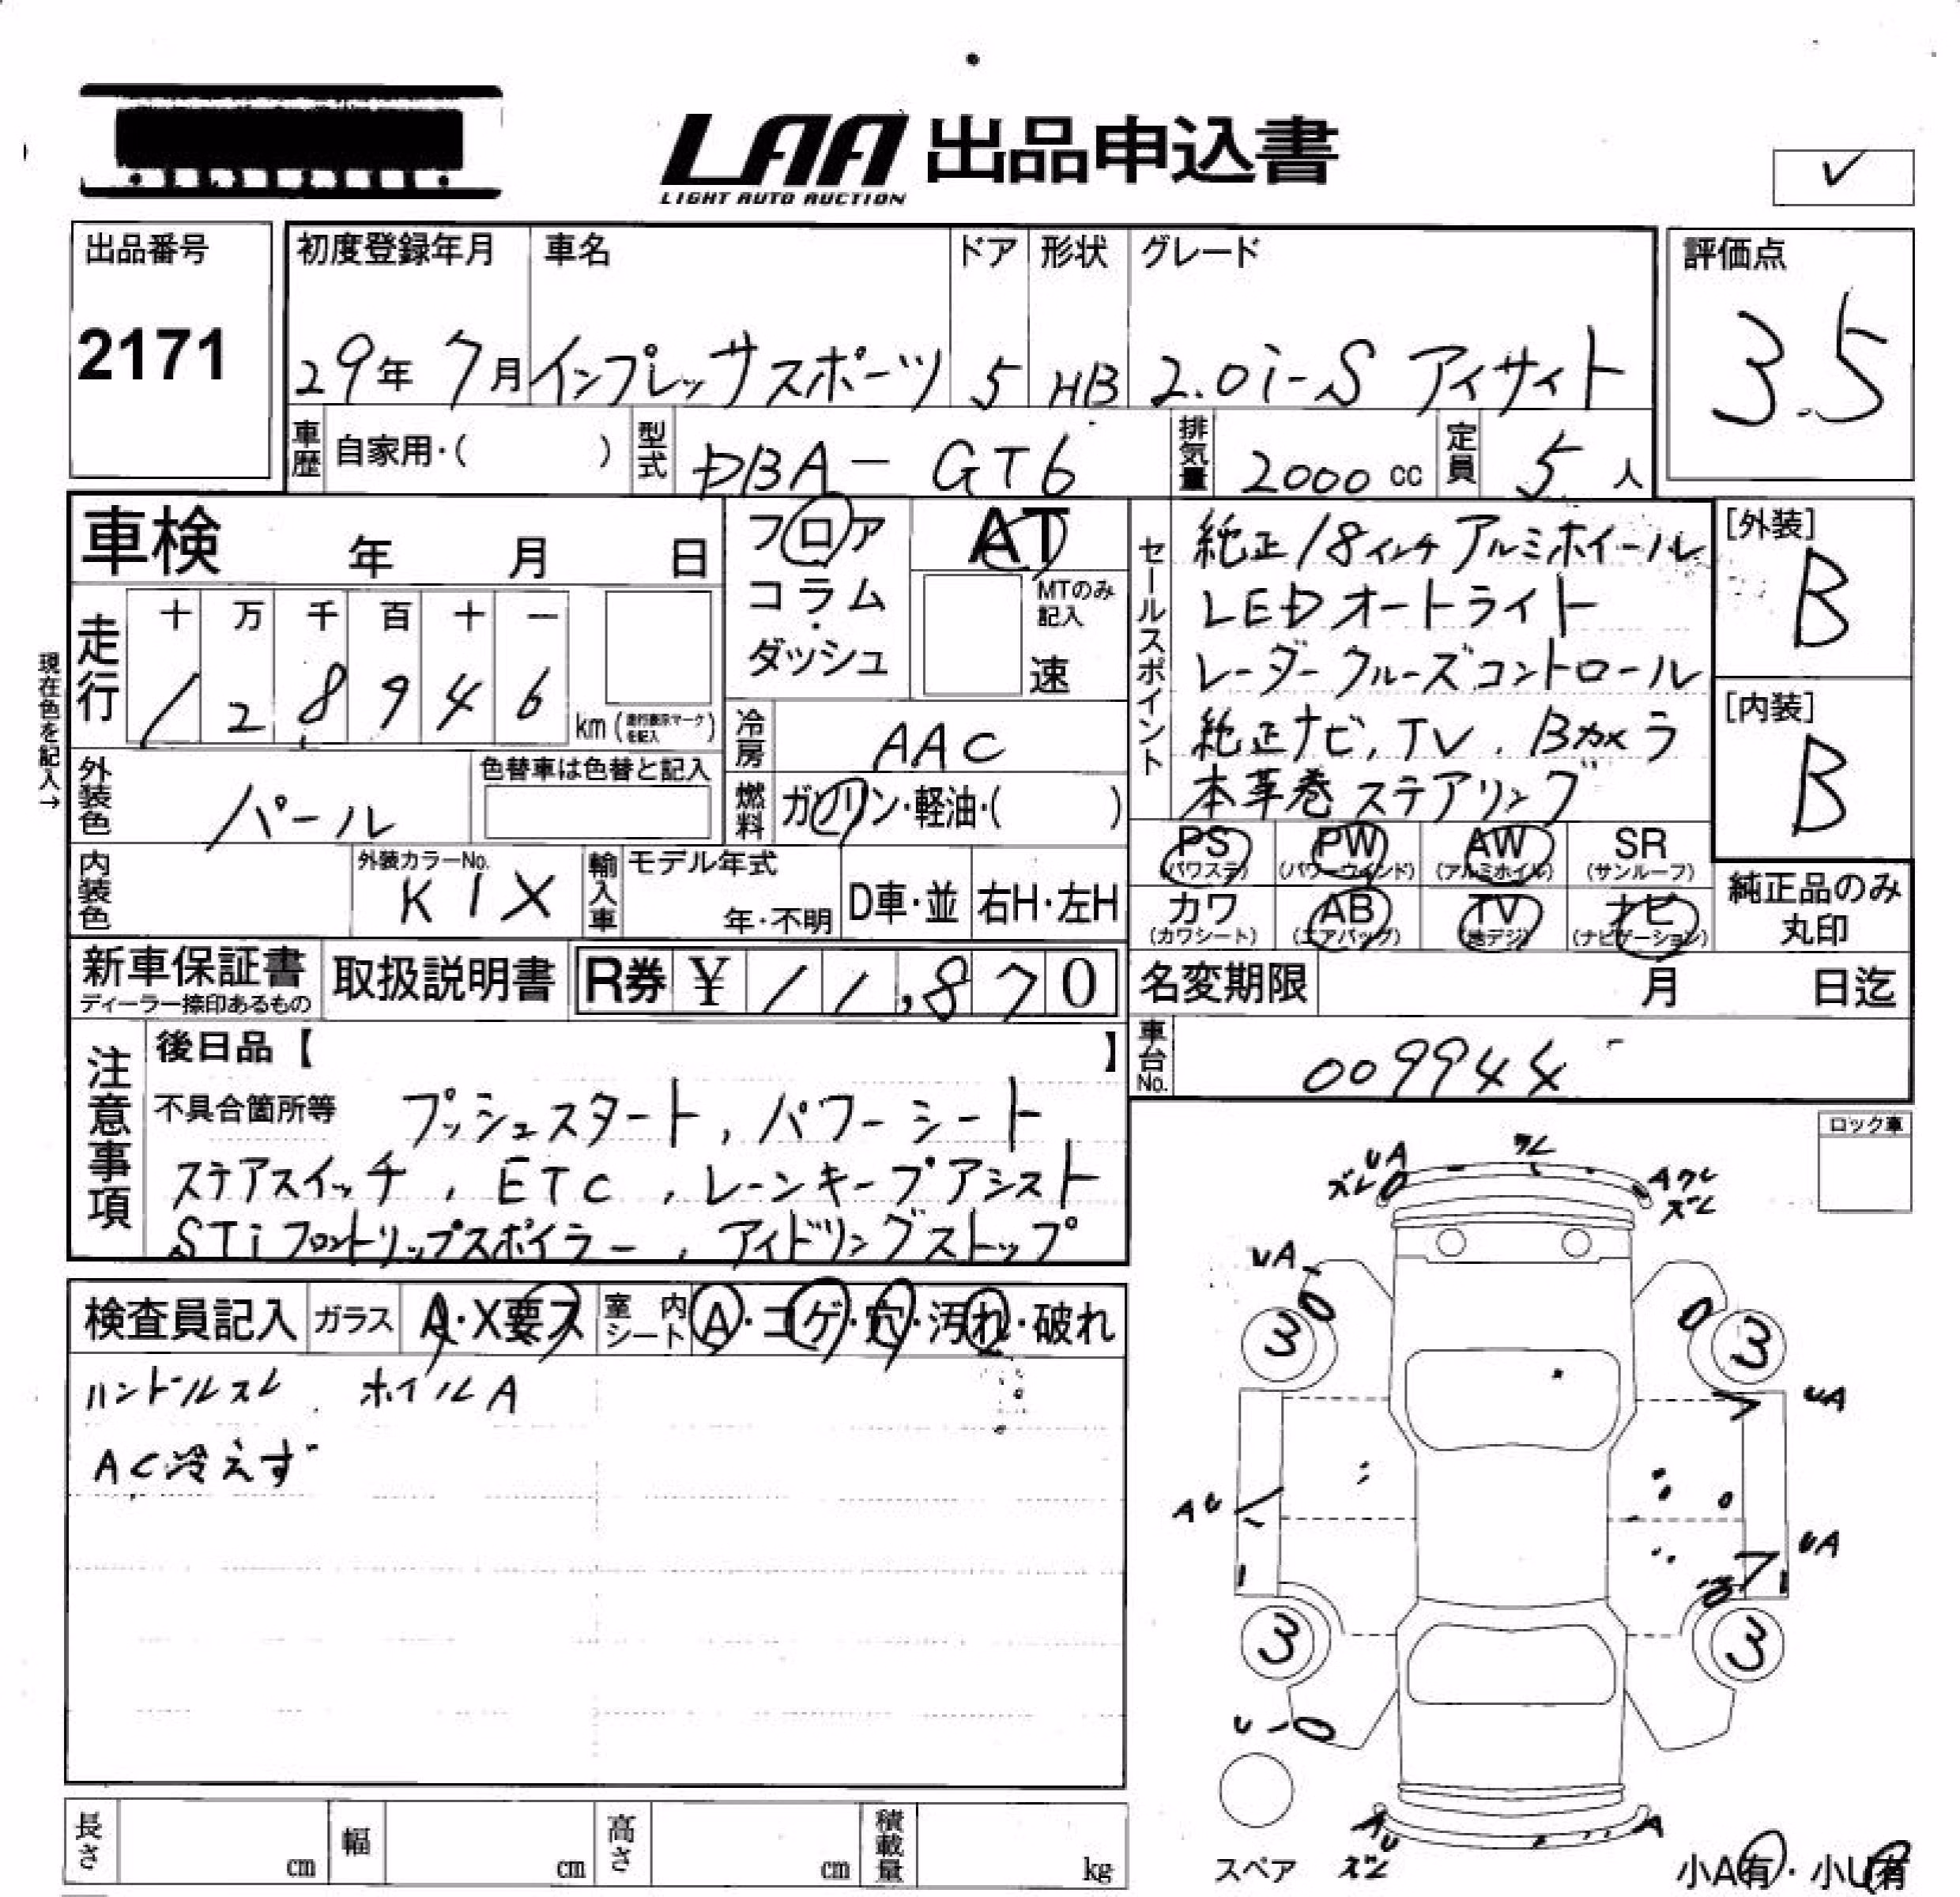 LAA 出品申込書
LIGHT AUTO AUCTION
✓
出品番号
2171
初度登録年月 車名 ドア 形状 グレード
29年 7月 インプレッサスポーツ 5 HB 2.0i-S アイサイト
評価点
3.5
車歴 自家用・( ) 型式 DBA-GT6 排気量 2000cc 定員 5人
車検 年 月 日
フロア
コラム・
ダッシュ
AT
MTのみ記入
速
現在色を記入→
走行 十 万 千 百 十 一
1 2 8 9 4 6 km (走行表示マークを記入)
冷房 AAC
外装色 パール
色替車は色替と記入
燃料 ガソリン・軽油・( )
内装色
外装カラーNo.
K1X
輸入車 モデル年式
年・不明
D車・並 右H・左H
セールスポイント
純正18インチアルミホイール
LEDオートライト
レーダークルーズコントロール
純正ナビ,TV,Bカメラ
本革巻ステアリング
[外装]
B
[内装]
B
PS PW AW SR
(パワステ) (パワーウインド) (アルミホイル) (サンルーフ)
カワ AB TV ナビ
(カワシート) (エアバッグ) (地デジ) (ナビゲーション)
純正品のみ
丸印
新車保証書
ディーラー捺印あるもの
取扱説明書
R券 ¥ 11,870
名変期限 月 日迄
車台No. 009944
注意事項
後日品【 】
不具合箇所等 プッシュスタート,パワーシート
ステアスイッチ,ETC,レーンキープアシスト
STiフロントリップスポイラー,アイドリングストップ
検査員記入 ガラス A・X要ス 室内シート A・コゲ・穴・汚れ・破れ
ハンドルスレ、ホイルA
AC冷えず
ロック車
UA
ズレ
ワレ
Aワレ
ズレ
UA
3
3
UA
AU
UA
3
3
U
AU
ズレ
A
スペア
小A有・小U有
長さ cm 幅 cm 高さ cm 積載量 kg